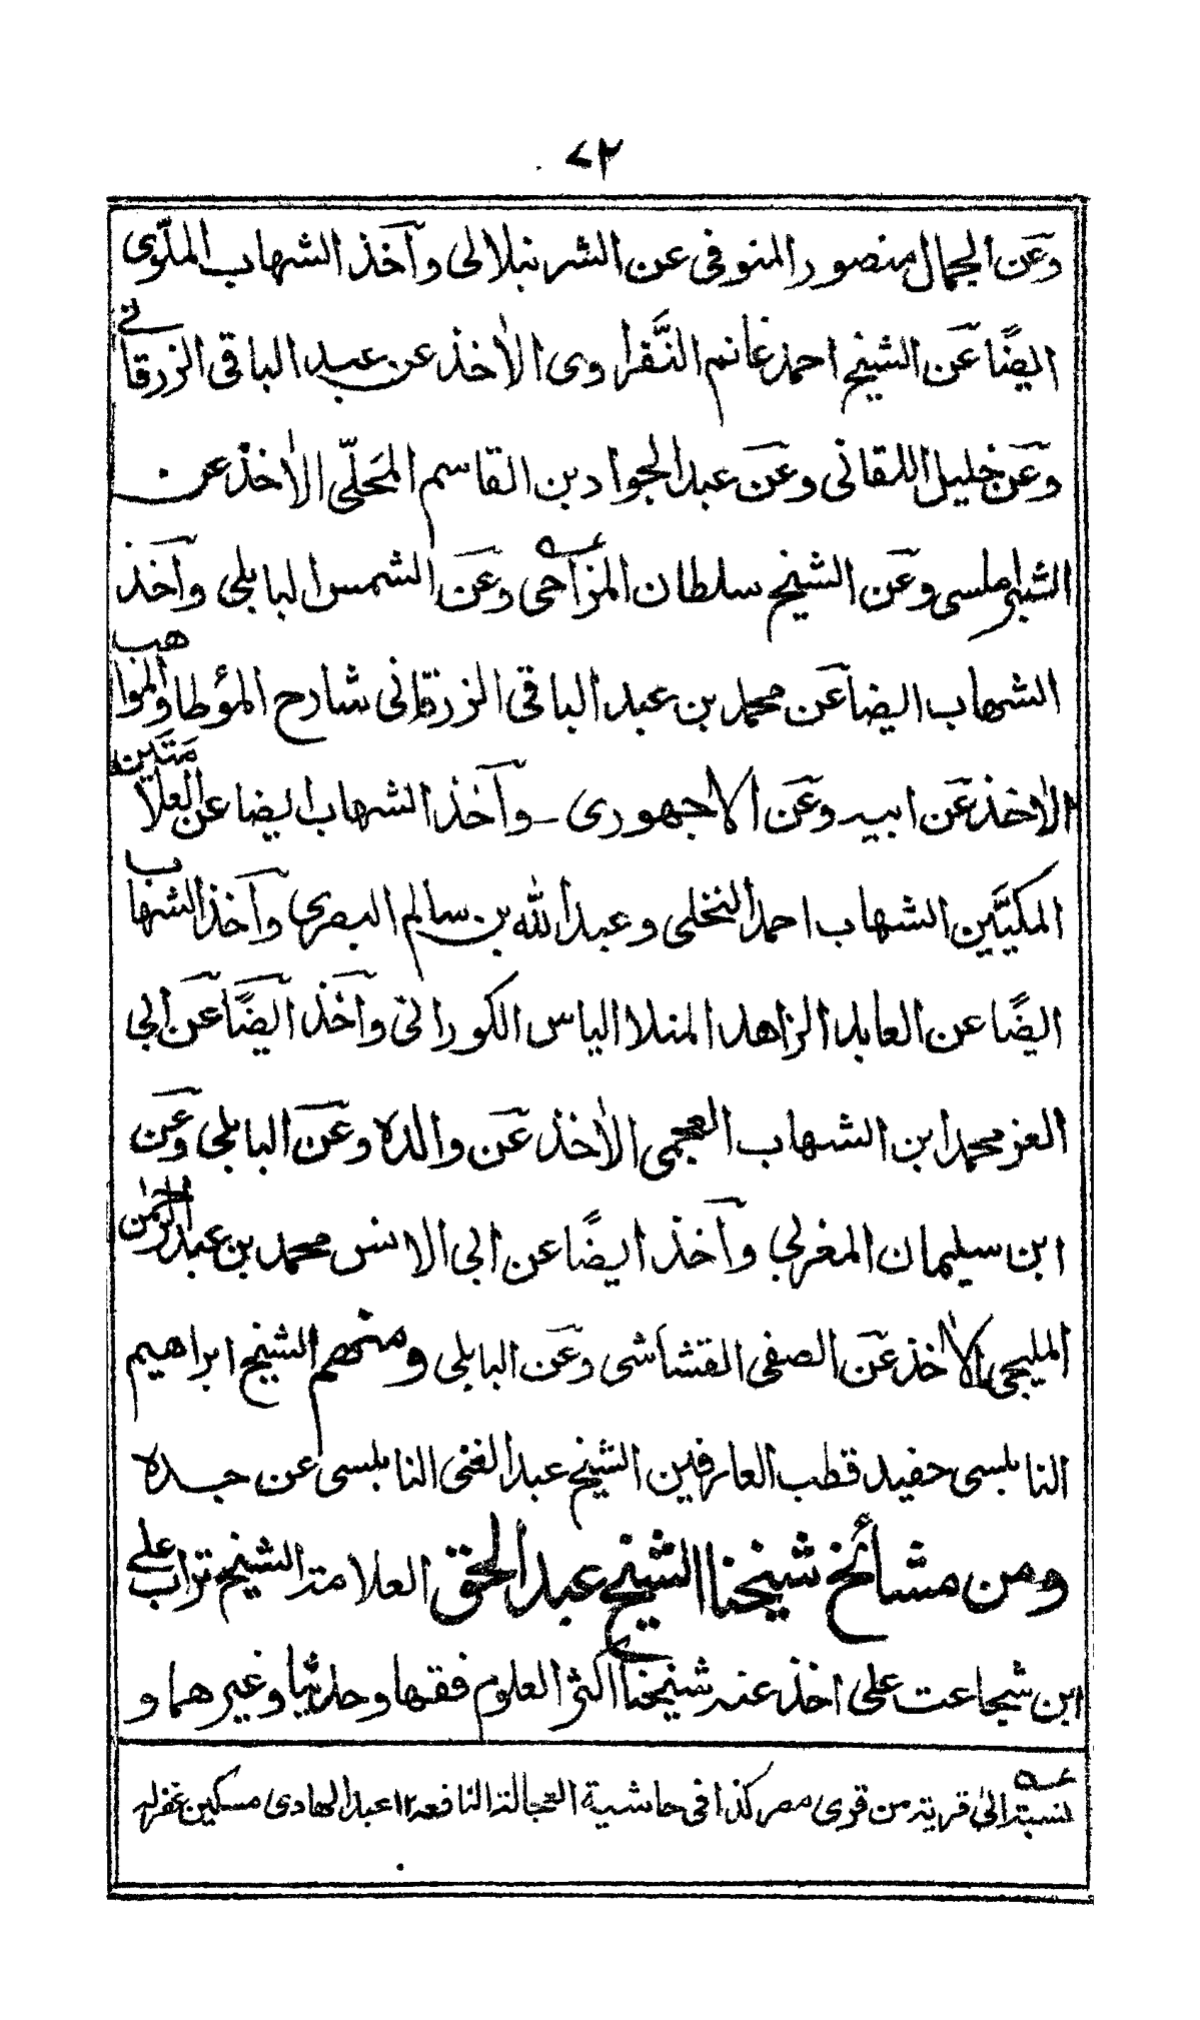 ٧٢
وعن الجمال منصور المنوفى عن الشرنبلالى وآخذ الشهاب الملّوى
ايضًا عن الشيخ احمد غانم النَّفراوى الاٰخذ عن عبد الباقى الزرقانى
وعن خليل اللقانى وعن عبد الجواد بن القاسم المَحَلّى الاٰخذ عن
الشبراملسى وعن الشيخ سلطان المزاحى وعن الشمس البابلى وآخذ
الشهاب ايضا عن محمد بن عبد الباقى الزرقانى شارح المؤطا والمواهب
الاٰخذ عن ابيه وعن الاجهورى وآخذ الشهاب ايضا عن العلامتين
المكيَّين الشهاب احمد النخلى وعبد الله بن سالم البصرى وآخذ الشهاب
ايضًا عن العابد الزاهد المنلا الياس الكورانى وآخذ ايضًا عن ابى
العز محمد ابن الشهاب العجمى الاٰخذ عن والده وعن البابلى وعن
ابن سليمان المغربى وآخذ ايضًا عن ابى الانس محمد بن عبد الرحمٰن
المليجى الاٰخذ عن الصفى القشاشى وعن البابلى ومنهم الشيخ ابراهيم
النابلسى حفيد قطب العارفين الشيخ عبد الغنى النابلسى عن جده
ومن مشائخ شيخنا الشيخ عبد الحق العلامة الشيخ تراب على
ابن شجاعت على اخذ عنه شيخنا اكثر العلوم فقها وحديثا وغيرهما و
نسبة الىٰ قرية من قرى مصر كذا فى حاشية العجالة النافعه ١٢ عبد الهادى مسكين غفرله